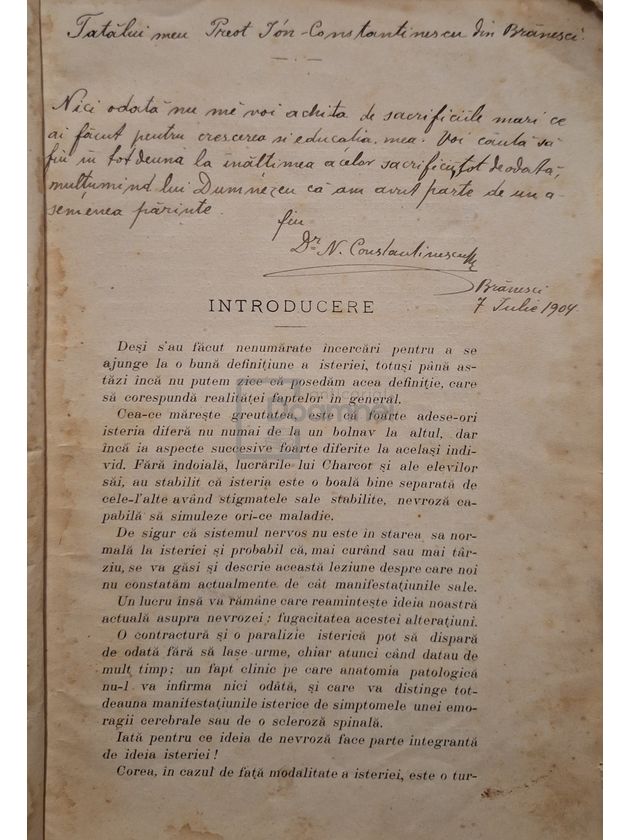 Tatălui meu Preot Ión Constantinescu din Brănesci.
Nici odată nu mĕ voi achita de sacrificiile mari ce
ai făcut pentru crescerea si educatia mea. Voi căuta să
fiu in tot deuna la inăltimea acelor sacrificii, tot de odată,
multumind lui Dumnezeu că am avut parte de un a-
semenea părinte.
fiu
Dr. N. Constantinescu
Brănesci
7 Iulie 1904
INTRODUCERE
Deși s'au făcut nenumărate incercări pentru a se
ajunge la o bună definițiune a isteriei, totuși până as-
tăzi incă nu putem zice că posedăm acea definiție, care
să corespundă realităței faptelor in general.
Cea-ce mărește greutatea, este că foarte adese-ori
isteria diferă nu numai de la un bolnav la altul, dar
incă ia aspecte succesive foarte diferite la același indi-
vid. Fără indoială, lucrările lui Charcot și ale elevilor
săi, au stabilit că isteria este o boală bine separată de
cele-l'alte având stigmatele sale stabilite, nevroză ca-
pabilă să simuleze ori-ce maladie.
De sigur că sistemul nervos nu este in starea sa nor-
mală la isterici și probabil că, mai curând sau mai târ-
ziu, se va găsi și descrie această leziune despre care noi
nu constatăm actualmente de cât manifestațiunile sale.
Un lucru insă va rămâne care reamintește ideia noastră
actuală asupra nevrozei; fugacitatea acestei alterațiuni.
O contractură și o paralizie isterică pot să dispară
de odată fără să lase urme, chiar atunci când datau de
mult timp; un fapt clinic pe care anatomia patologică
nu-l va infirma nici odată, și care va distinge tot-
deauna manifestațiunile isterice de simptomele unei emo-
ragii cerebrale sau de o scleroză spinală.
Iată pentru ce ideia de nevroză face parte integrantă
de ideia isteriei!
Corea, in cazul de față modalitate a isteriei, este o tur-